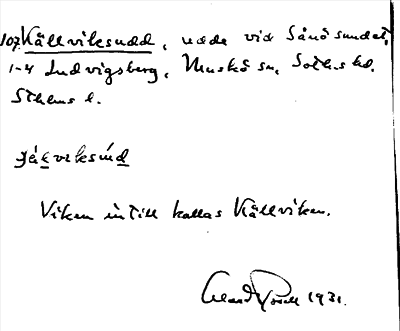 107. Källviksudd, udde vid Sånösundet,
1-4 Ludvigsberg, Muskö sn, Soth. hd.
Sthms l.
Viken intill kallas Källviken.
1931.